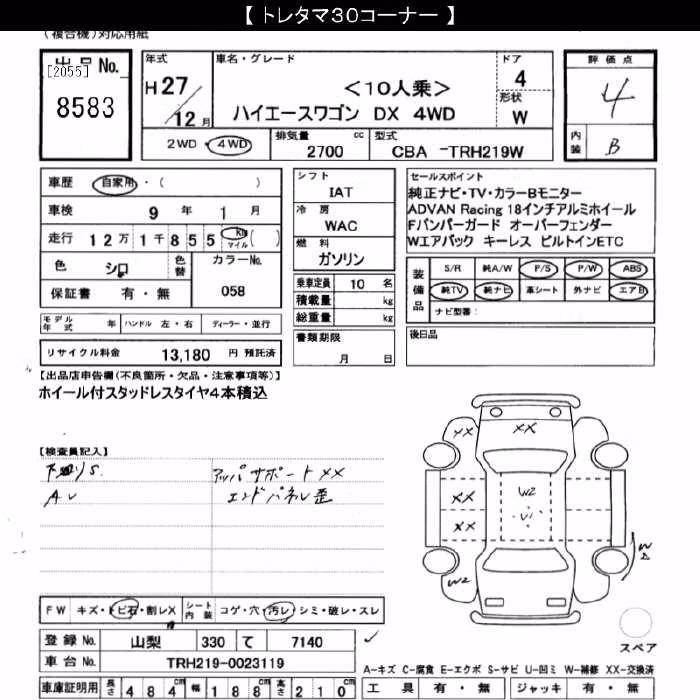 【 トレタマ30コーナー 】
(複合機)対応用紙
出品No.
[2055]
8583
年式
H 27／12月
車名・グレード
＜10人乗＞
ハイエースワゴン DX 4WD
ドア
4
形状
W
評価点
4
内装
B
2WD・4WD
排気量
2700 cc
型式
CBA -TRH219W
車歴 自家用・( )
車検 9年 1月
走行 12万1千855 Km マイル ( )
色 シロ 色替
カラーNo.
058
保証書 有・無
シフト
IAT
冷房
WAC
燃料
ガソリン
乗車定員 10 名
積載量 kg
総重量 kg
書類期限
月 日
セールスポイント
純正ナビ・TV・カラーBモニター
ADVAN Racing 18インチアルミホイール
Fバンパーガード オーバーフェンダー
Wエアバック キーレス ビルトインETC
装備品
S/R 純A/W P/S P/W ABS
純TV 純ナビ 革シート 外ナビ エアB
ナビ型番:
後日品
モデル年式 年 ハンドル 左・右 ディーラー・並行
リサイクル料金 13,180 円 預託済
【出品店申告欄(不良箇所・欠品・注意事項等)】
ホイール付スタッドレスタイヤ4本積込
【検査員記入】
下廻りS.
アッパサポートXX
エンドパネル歪
XX
XX
XX
XX
W2
U1
W2
W
FW キズ・トビ石・割レX シート内装 コゲ・穴・汚レ・シミ・破レ・スレ
登録No. 山梨 330 て 7140
車台No. TRH219-0023119
車庫証明用 長さ 484cm 幅 188cm 高さ 210cm
スペア
A-キズ C-腐食 E-エクボ S-サビ U-凹ミ W-補修 XX-交換済
工具 有・無 ジャッキ 有・無